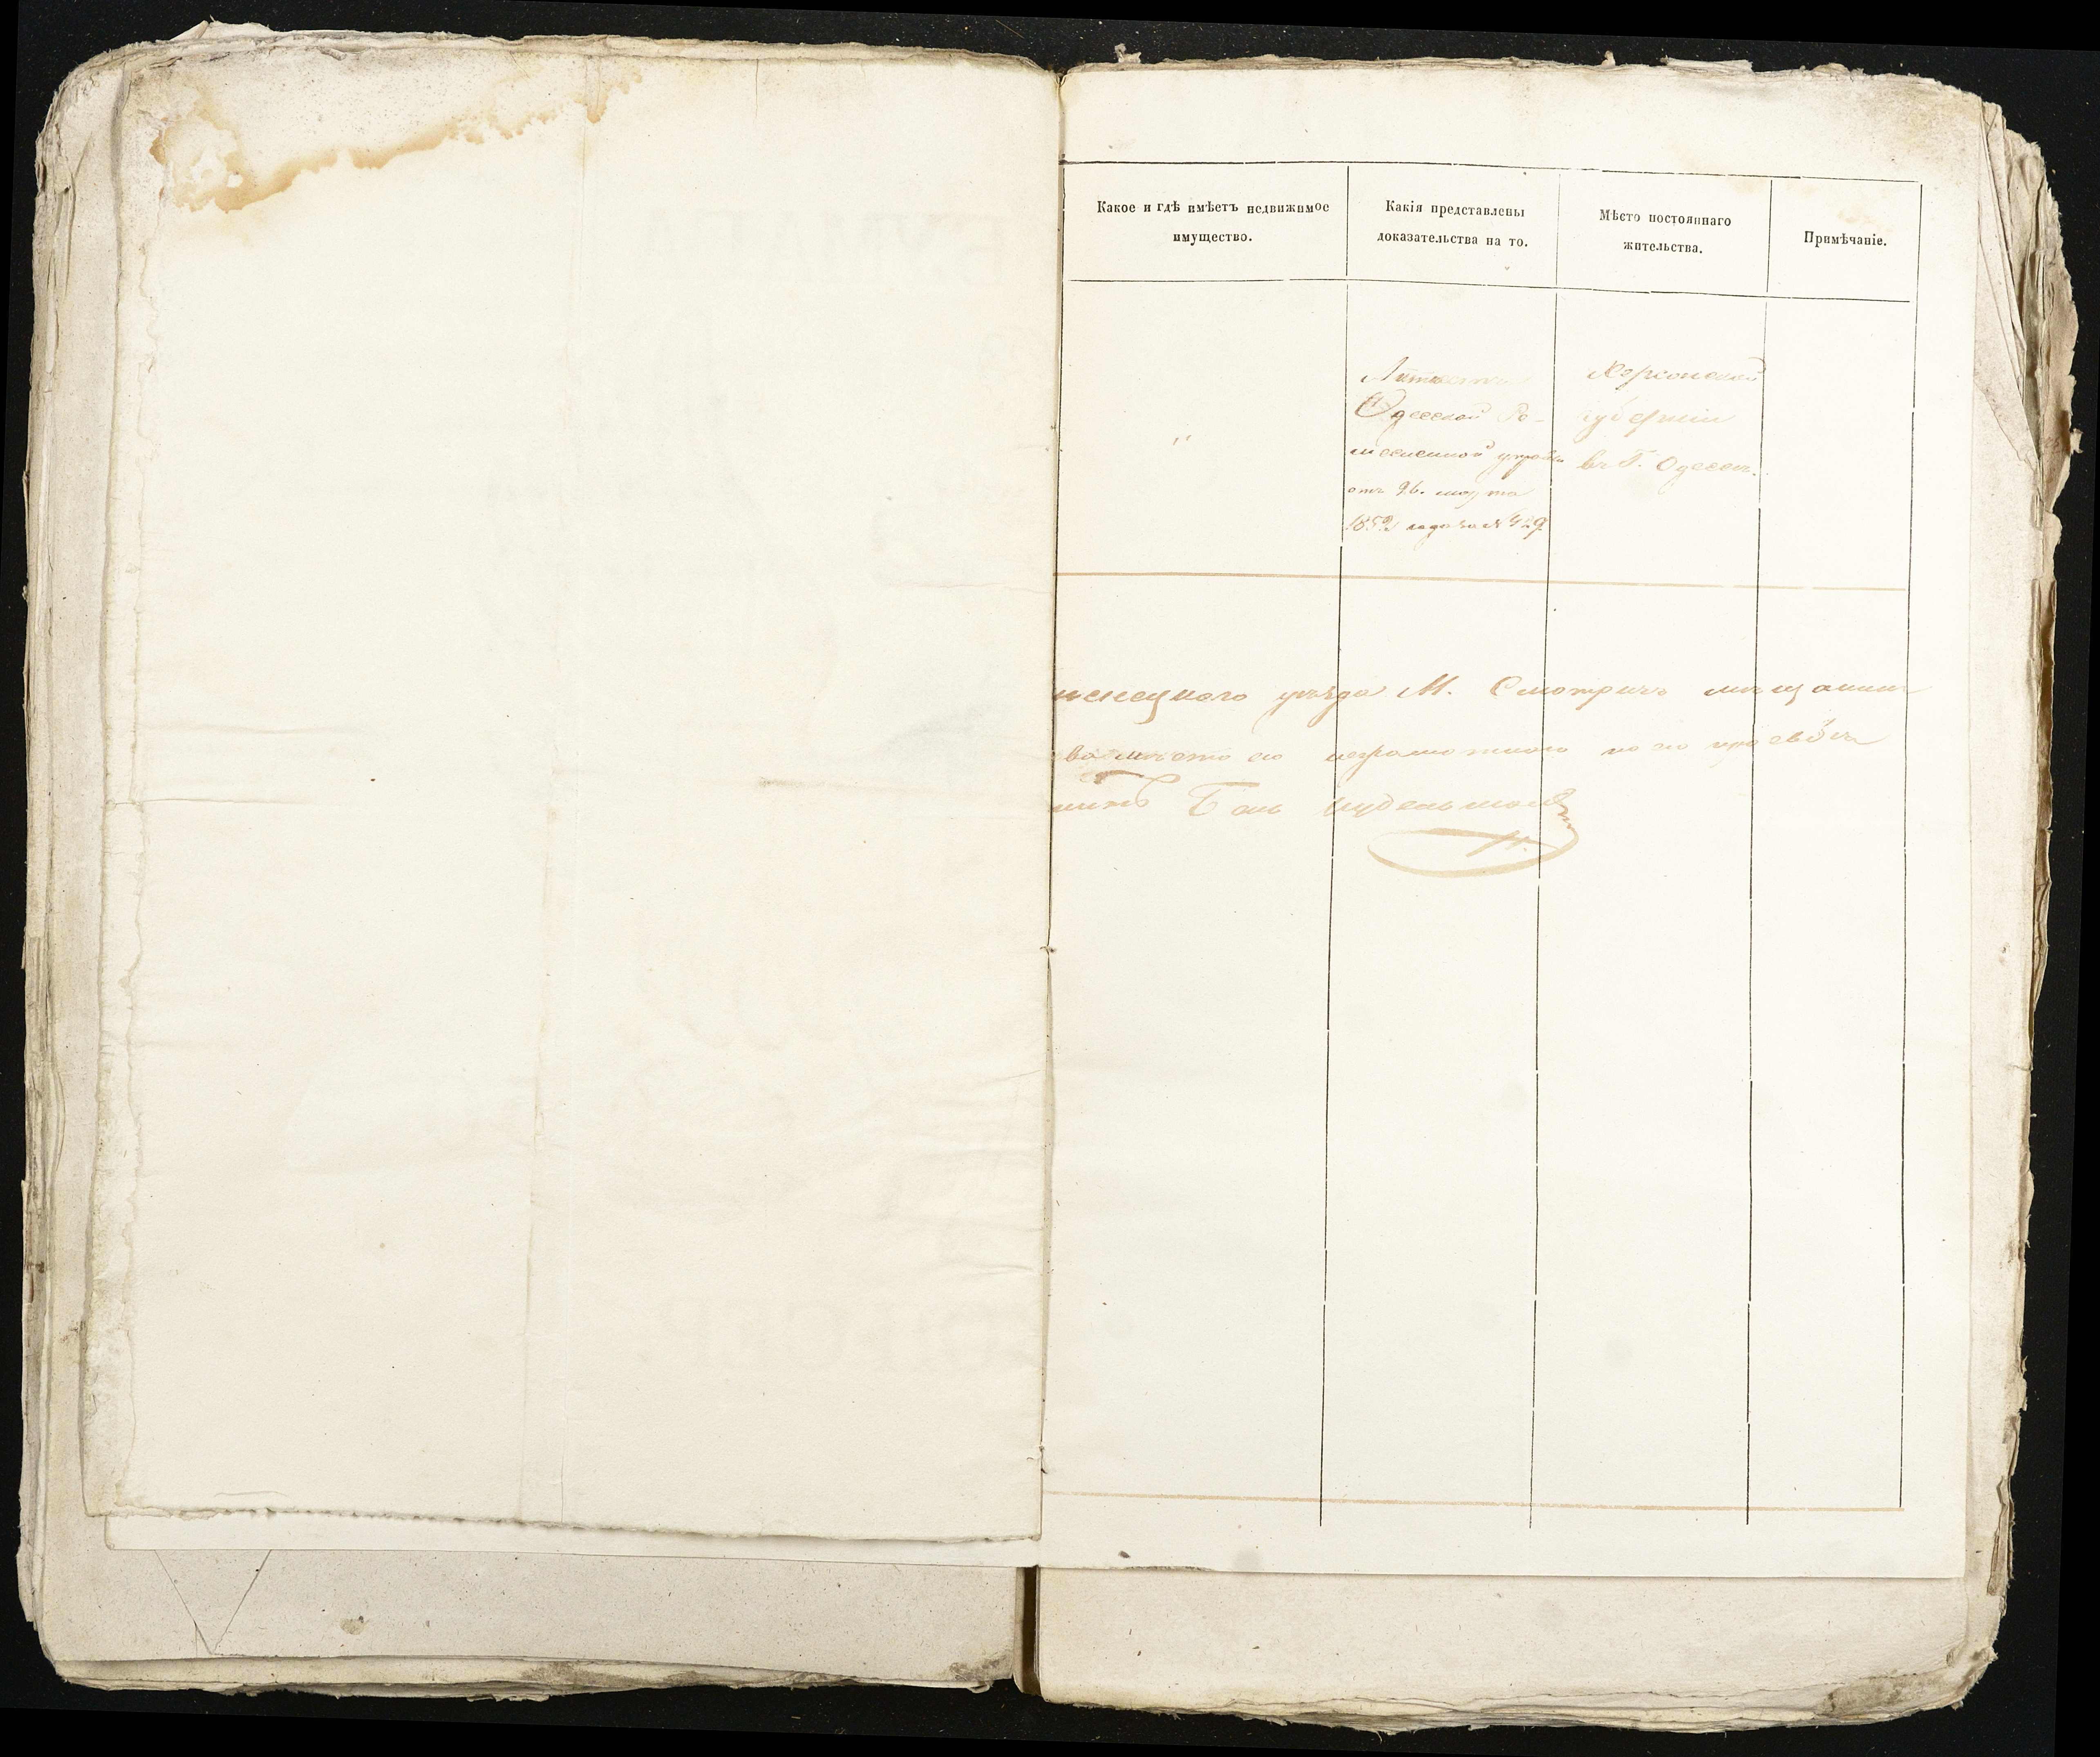 Какое и гдѣ имѣетъ недвижимое
имущество.
Какія представлены
доказательства на то.
Мѣсто постояннаго
жительства.
Примѣчаніе.
"
Одесской Ре-
месленной управы
отъ 26. марта
1852 года за № 429
Херсонской
губерніи
въ Г. Одессѣ.
уѣзда М. Смотричъ мѣщанинъ
вмѣсто его неграмотного по его прозьбѣ